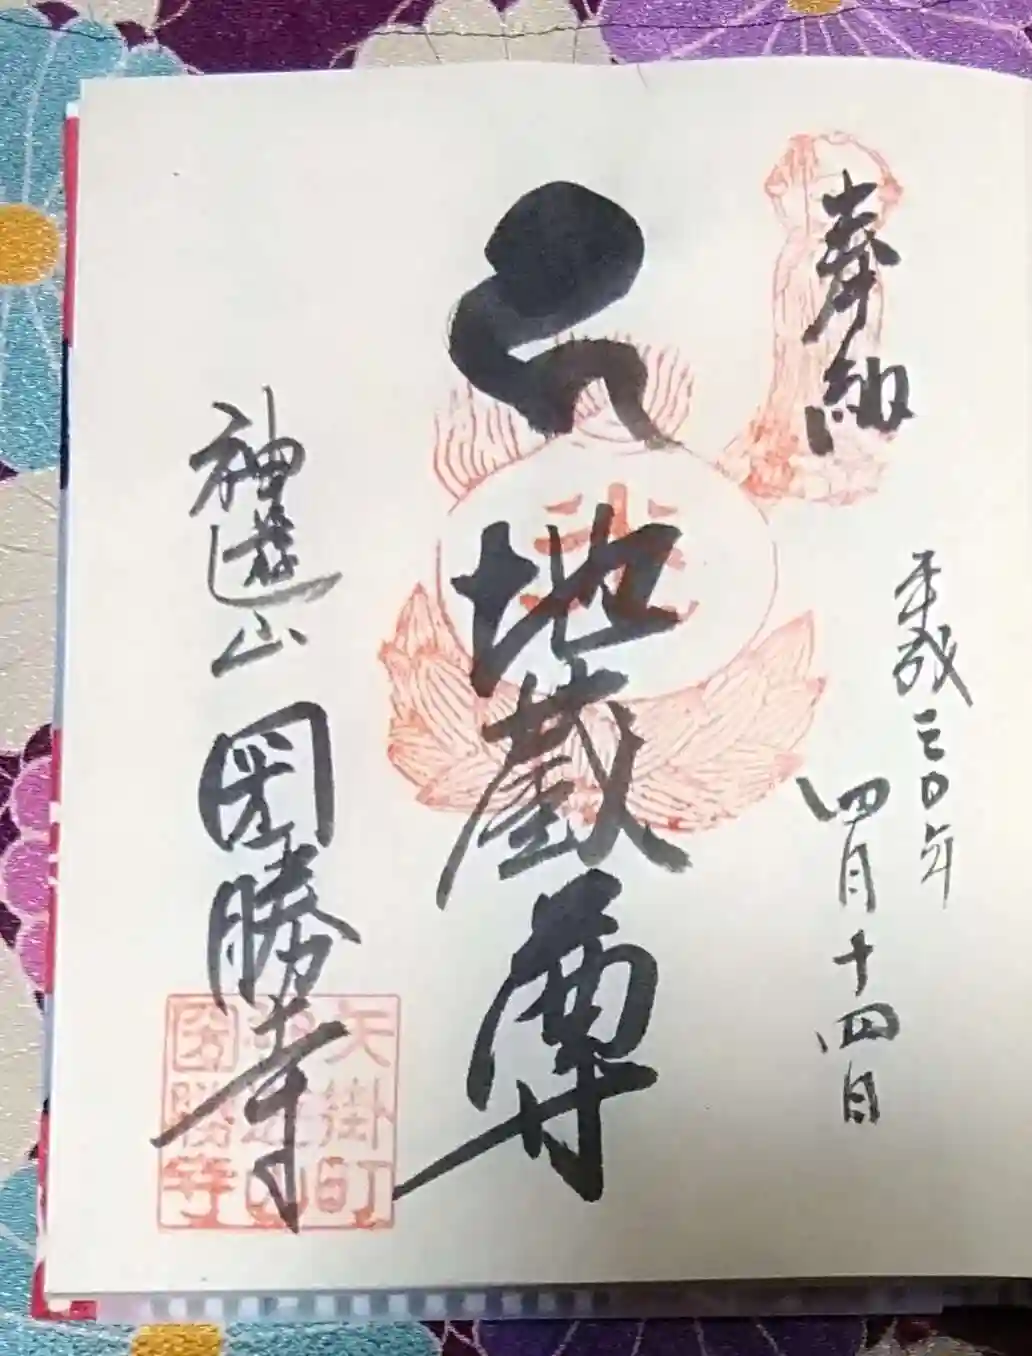 奉納
平成三〇年
四月十四日
地蔵尊
神遊山 圀勝寺
矢掛町
神遊山
圀勝寺